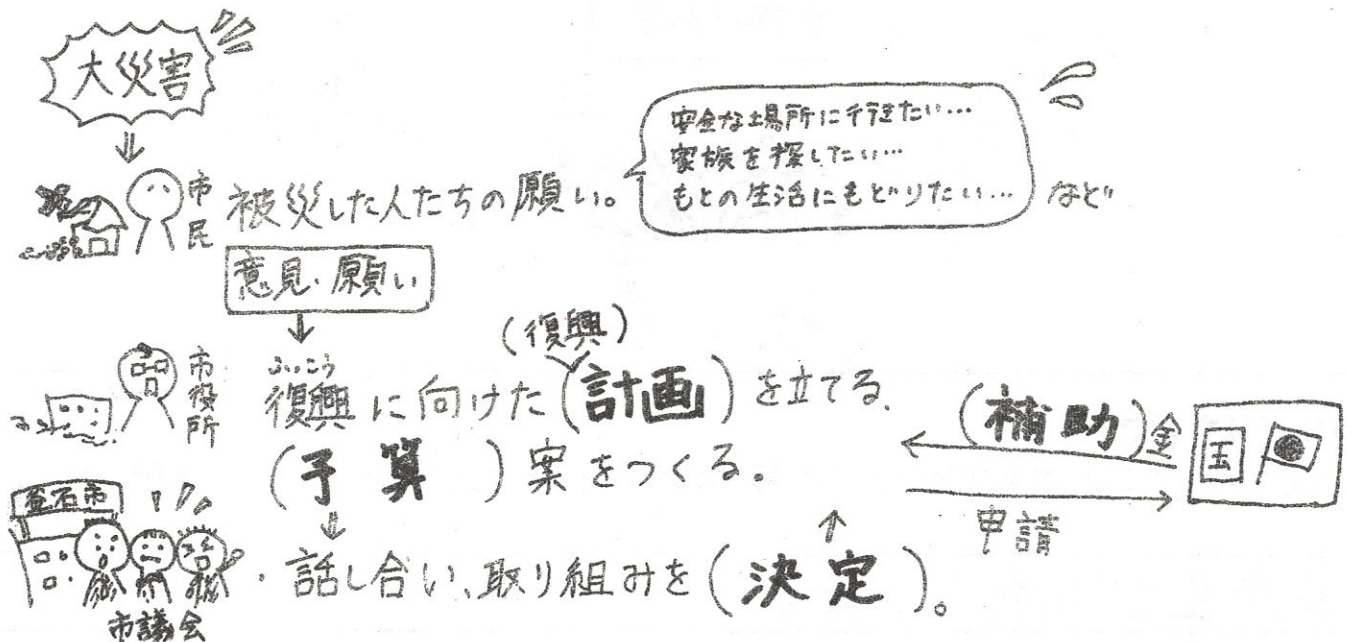 大災害
市民
被災した人たちの願い。
安全な場所に行きたい…
家族を探したい…
もとの生活にもどりたい… など
意見・願い
(復興)
市役所
ふっこう
復興に向けた(計画)を立てる.
(予算)案をつくる。
(補助)金
国
申請
釜石市
・話し合い、取り組みを(決定)。
市議会